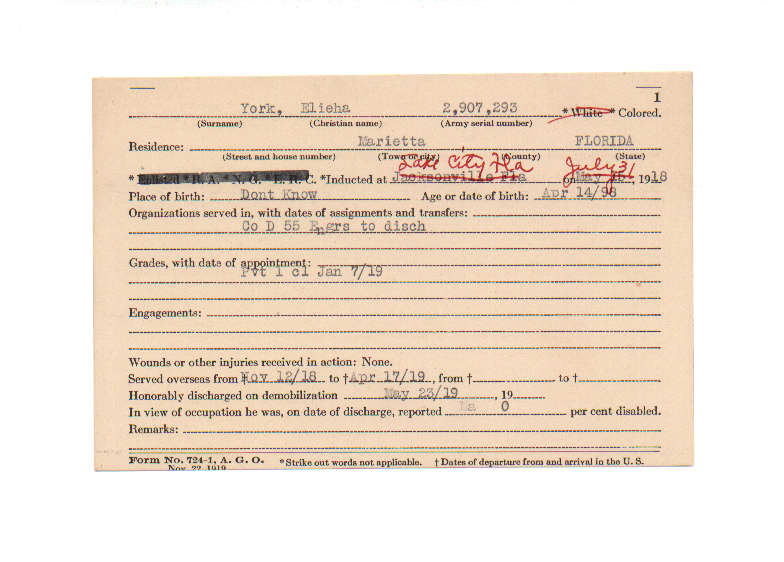 1
York, Elieha 2,907,293 * White * Colored.
(Surname) (Christian name) (Army serial number)
Residence: Marietta FLORIDA
(Street and house number) (Town or city) (County) (State)
Lake City Fla July 31
* Enlisted * R. A. * N. G. * E. R. C. *Inducted at Jacksonville Fla on May 15, 1918
Place of birth: Dont Know Age or date of birth: Apr 14/98
Organizations served in, with dates of assignments and transfers:
Co D 55 Engrs to disch
Grades, with date of appointment:
Pvt 1 cl Jan 7/19
Engagements:
Wounds or other injuries received in action: None.
Served overseas from † Nov 12/18 to † Apr 17/19, from † to †
Honorably discharged on demobilization May 23/19, 19
In view of occupation he was, on date of discharge, reported 0 per cent disabled.
Remarks:
Form No. 724-1, A. G. O. *Strike out words not applicable. † Dates of departure from and arrival in the U. S.
Nov. 22, 1919